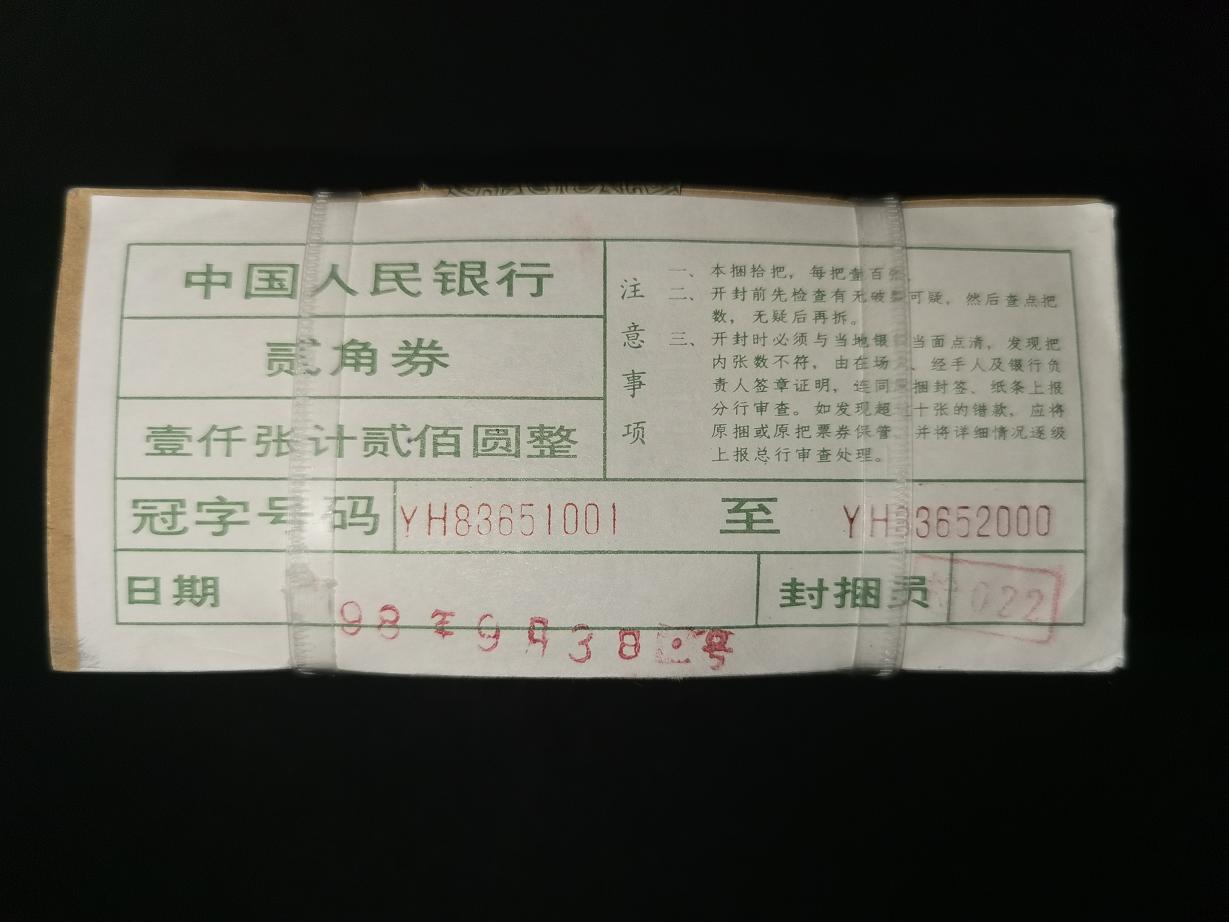 中国人民银行
贰角券
壹仟张计贰佰圆整
注意事项
一、本捆拾把，每把壹百张。
二、开封前先检查有无破裂可疑，然后查点把
数，无疑后再拆。
三、开封时必须与当地银行当面点清，发现把
内张数不符，由在场人、经手人及银行负
责人签章证明，连同原捆封签、纸条上报
分行审查。如发现超过十张的错款，应将
原捆或原把票券保管，并将详细情况逐级
上报总行审查处理。
冠字号码 YH83651001 至 YH83652000
日期
98年9月38 号
封捆员 022